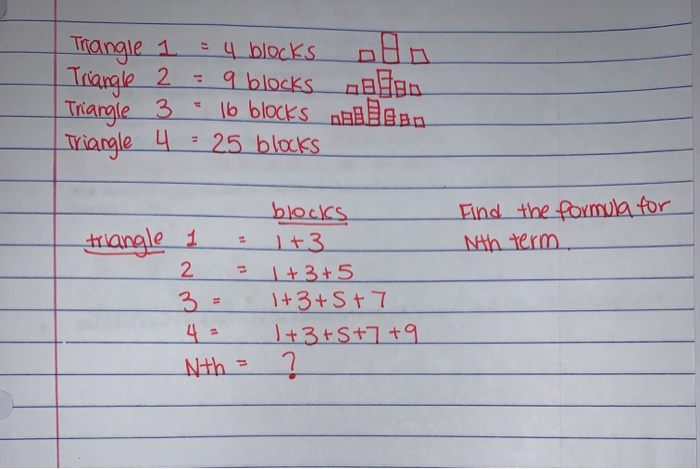 Triangle 1 = 4 blocks
Triangle 2 = 9 blocks
Triangle 3 = 16 blocks
Triangle 4 = 25 blocks
blocks
Find the formula for
triangle 1 = 1+3
Nth term.
2 = 1+3+5
3 = 1+3+5+7
4 = 1+3+5+7+9
Nth = ?